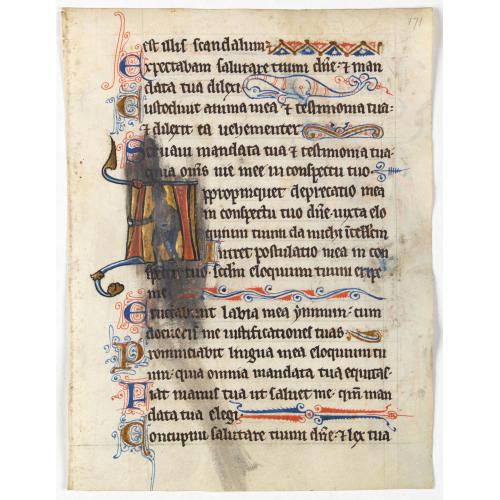 171
est illis scandalum
Expectabam salutare tuum dñe ⁊ man
data tua dilexi
Custodiuit anima mea ⁊ testimonia tua
⁊ dilexit ea uehementer
Seruaui mandata tua ⁊ testimonia tua
quia om̃s uie mee in conspectu tuo
Appropinquet deprecatio mea
in conspectu tuo dñe iuxta elo
quium tuum da michi
Intret postulatio mea in con
tuo scd̃m eloquium tuum eripe
me
Eructabunt labia mea ymnum cum
docueris me iustificationes tuas
Pronunciabit lingua mea eloquium tu
um quia omnia mandata tua equitas
Fiat manus tua ut saluet me qm̃ man
data tua elegi
Concupiui salutare tuum dñe ⁊ lex tua